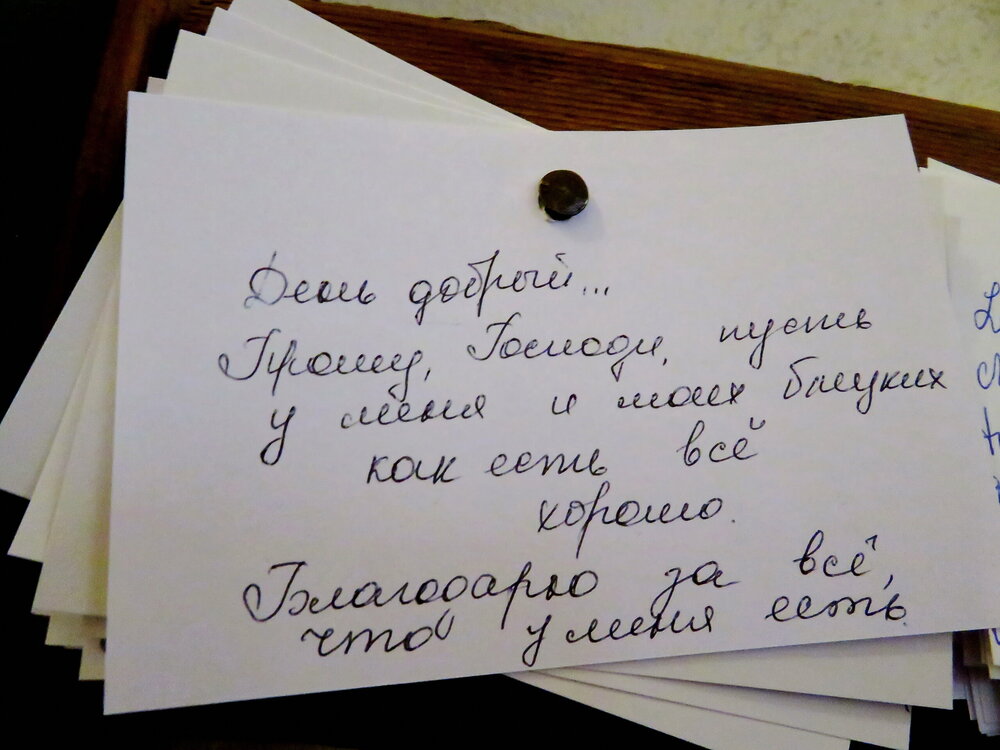 День добрый...
Прошу, Господи, пусть
у меня и моих близких
как есть всё
хорошо.
Благодарю за всё,
что у меня есть.